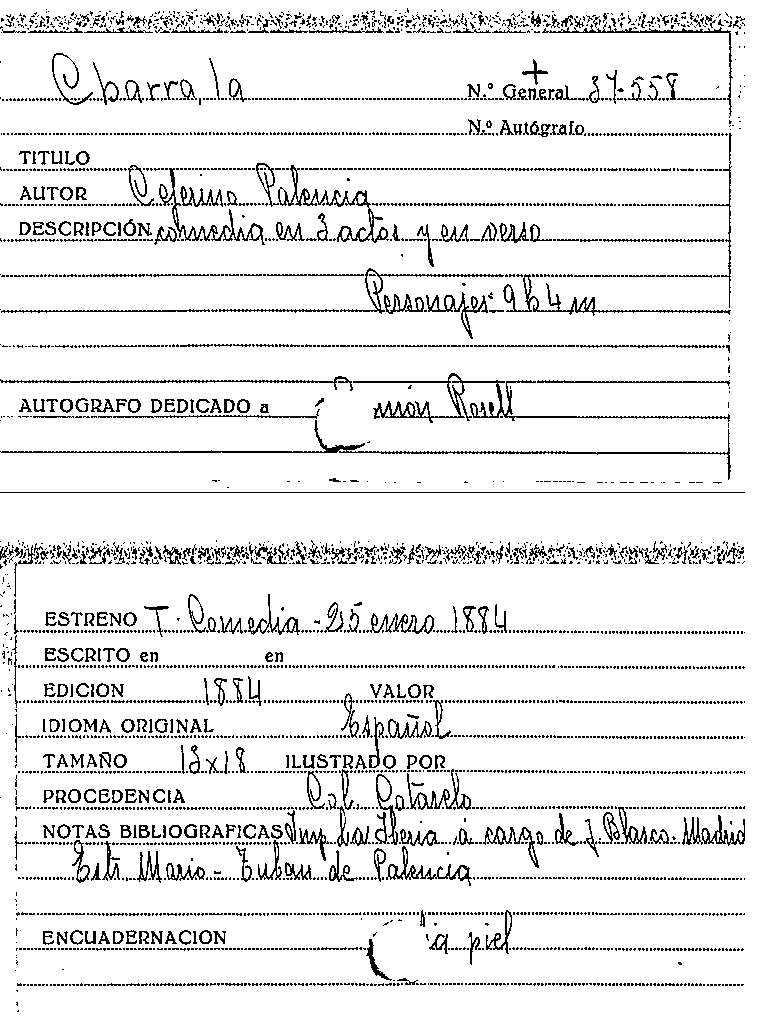 Charra, la
+
N.º General 37-558
N.º Autógrafo
TITULO
AUTOR Ceferino Palencia
DESCRIPCIÓN comedia en 3 actos y en verso
Personajes: 9 h 4 m
AUTOGRAFO DEDICADO a món Rosell
ESTRENO T. Comedia - 25 enero 1884
ESCRITO en en
EDICION 1884 VALOR
IDIOMA ORIGINAL Español
TAMAÑO 13x18 ILUSTRADO POR
PROCEDENCIA Col. Cotarelo
NOTAS BIBLIOGRAFICAS Imp La Iberia á cargo de J. Blasco. Madrid
Estr Mario - Tubau de Palencia
ENCUADERNACION piel